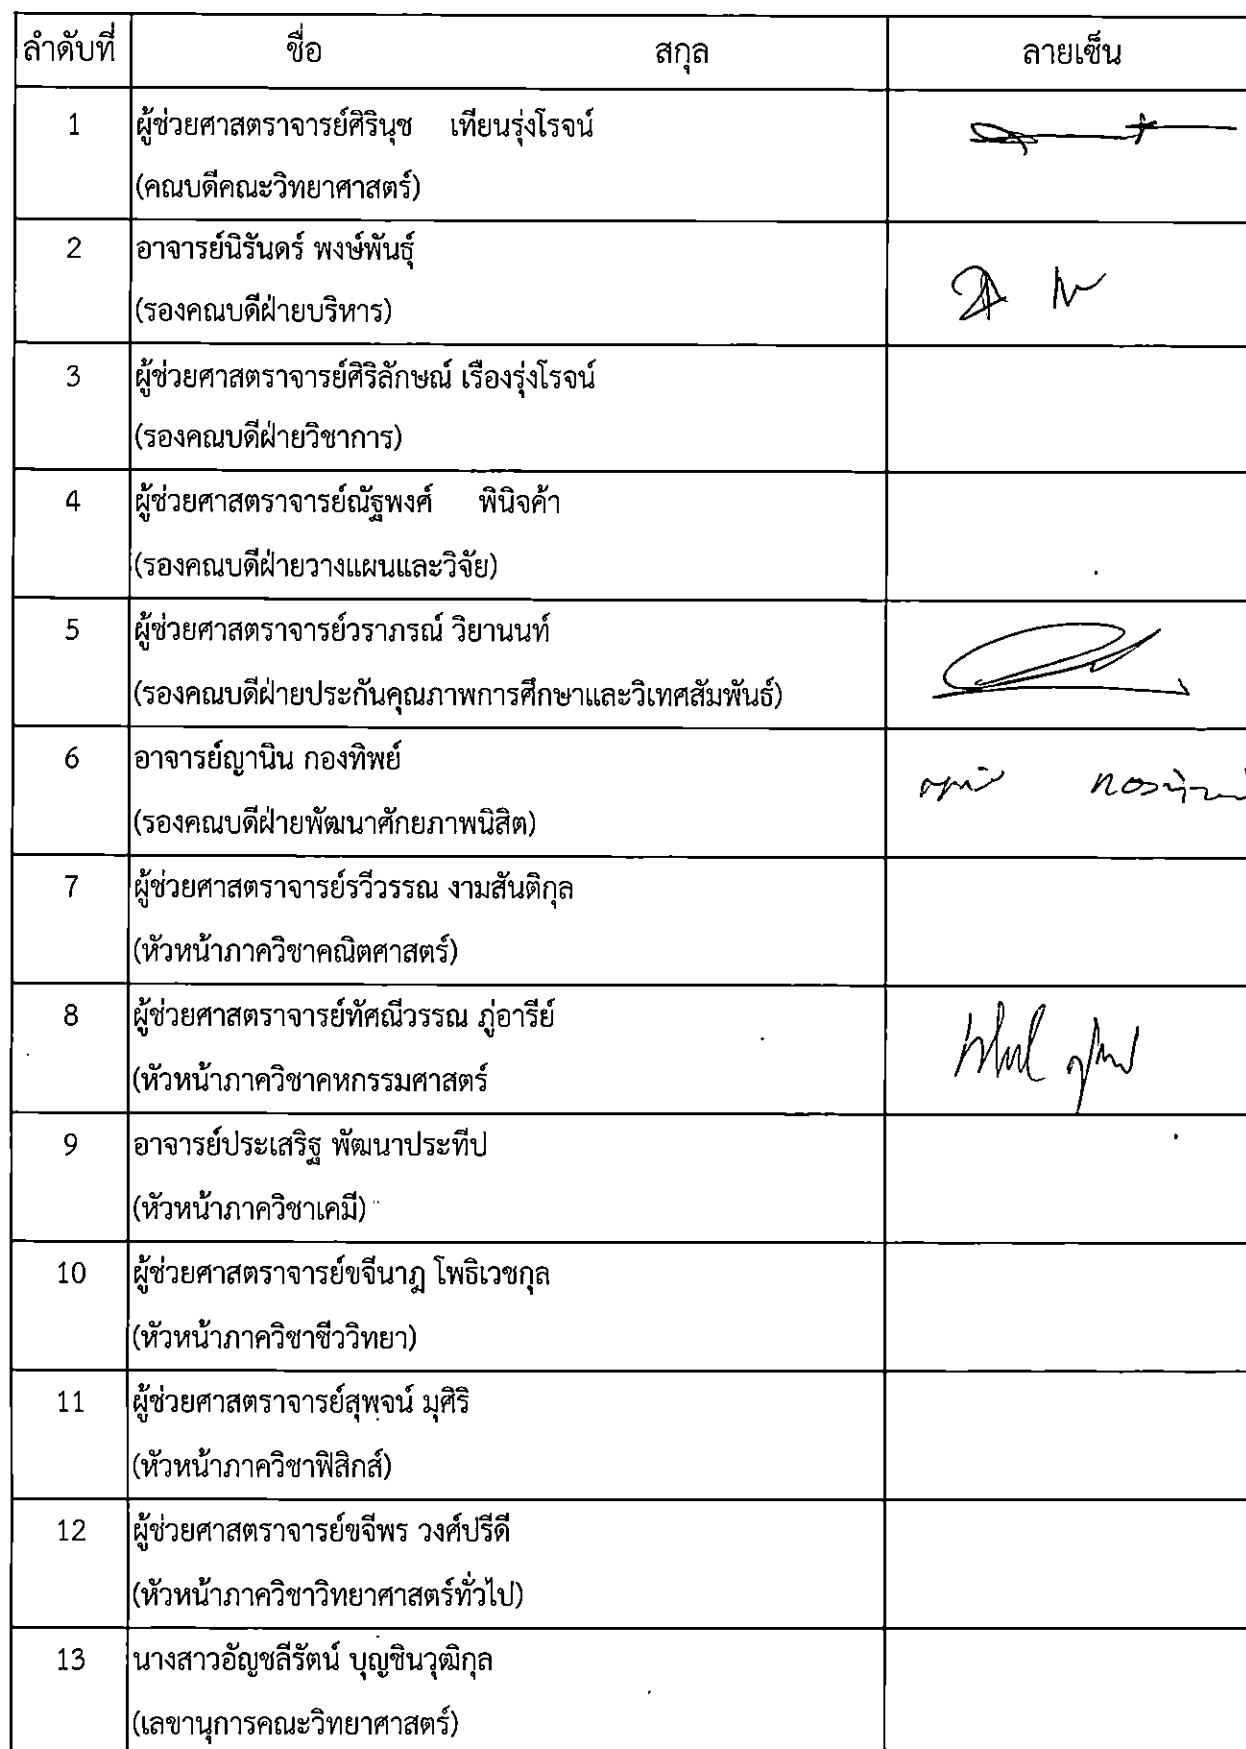 ลำดับที่ ชื่อ สกุล ลายเซ็น
1 ผู้ช่วยศาสตราจารย์ศิรินุช เทียนรุ่งโรจน์
(คณบดีคณะวิทยาศาสตร์)
2 อาจารย์นิรันดร์ พงษ์พันธุ์
(รองคณบดีฝ่ายบริหาร)
3 ผู้ช่วยศาสตราจารย์ศิริลักษณ์ เรืองรุ่งโรจน์
(รองคณบดีฝ่ายวิชาการ)
4 ผู้ช่วยศาสตราจารย์ณัฐพงศ์ พินิจค้า
(รองคณบดีฝ่ายวางแผนและวิจัย)
5 ผู้ช่วยศาสตราจารย์วราภรณ์ วิยานนท์
(รองคณบดีฝ่ายประกันคุณภาพการศึกษาและวิเทศสัมพันธ์)
6 อาจารย์ญานิน กองทิพย์
(รองคณบดีฝ่ายพัฒนาศักยภาพนิสิต)
7 ผู้ช่วยศาสตราจารย์รวีวรรณ งามสันติกุล
(หัวหน้าภาควิชาคณิตศาสตร์)
8 ผู้ช่วยศาสตราจารย์ทัศณีวรรณ ภู่อารีย์
(หัวหน้าภาควิชาคหกรรมศาสตร์
9 อาจารย์ประเสริฐ พัฒนาประทีป
(หัวหน้าภาควิชาเคมี)
10 ผู้ช่วยศาสตราจารย์ขจีนาฏ โพธิเวชกุล
(หัวหน้าภาควิชาชีววิทยา)
11 ผู้ช่วยศาสตราจารย์สุพจน์ มุศิริ
(หัวหน้าภาควิชาฟิสิกส์)
12 ผู้ช่วยศาสตราจารย์ขจีพร วงศ์ปรีดี
(หัวหน้าภาควิชาวิทยาศาสตร์ทั่วไป)
13 นางสาวอัญชลีรัตน์ บุญชินวุฒิกุล
(เลขานุการคณะวิทยาศาสตร์)